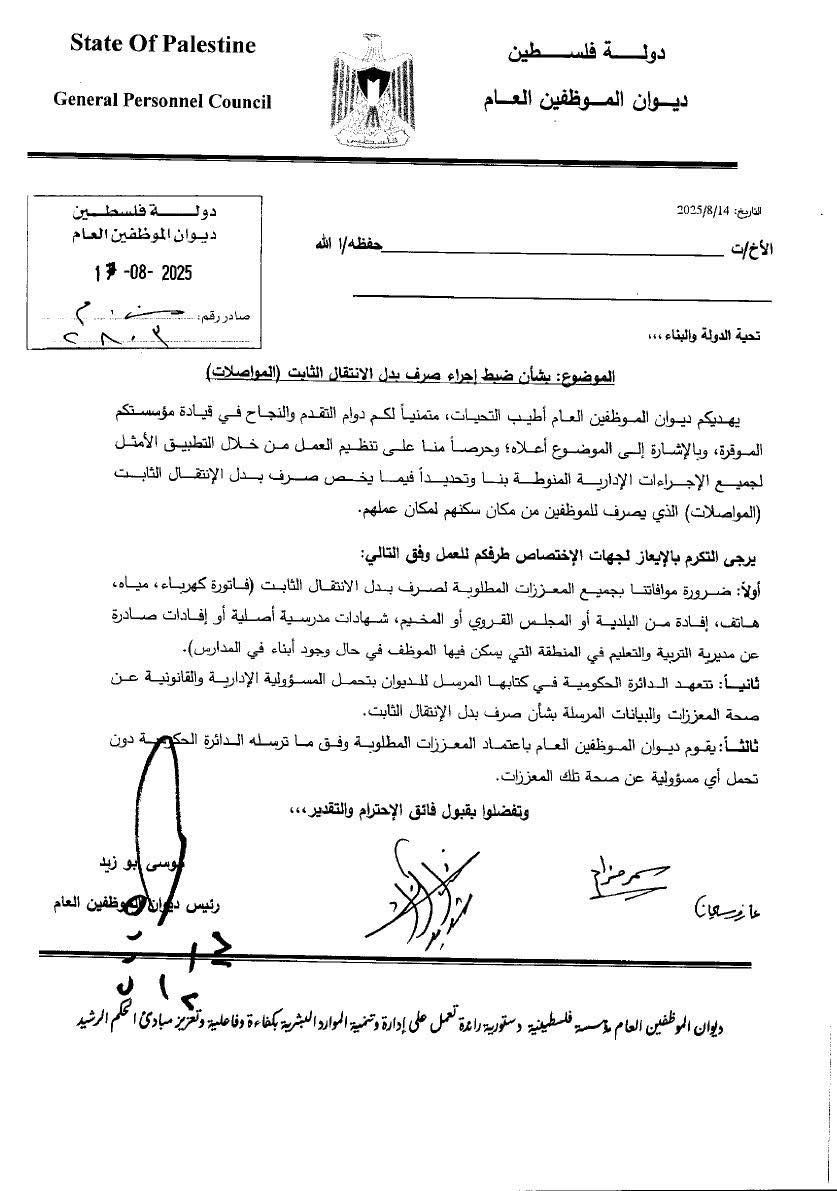 State Of Palestine
دولـــة فلســـطين
General Personnel Council
ديـوان المـوظفين العـام
فلسطين
دولـــــة فلسـطـيـن
ديـوان الموظفين العـام
17 -08- 2025
صادر رقم:
٢٨٠٣
التاريخ: 2025/8/14
الأخ/ت ________ حفظه/ا الله
تحية الدولة والبناء،،،
الموضوع: بشأن ضبط إجراء صرف بدل الانتقال الثابت (المواصلات)
يهديكم ديوان الموظفين العام أطيب التحيات، متمنياً لكم دوام التقدم والنجاح في قيادة مؤسستكم
الموقرة، وبالإشارة إلى الموضوع أعلاه؛ وحرصاً منا على تنظيم العمل من خلال التطبيق الأمثل
لجميع الإجراءات الإدارية المنوطة بنا وتحديداً فيما يخص صرف بدل الإنتقال الثابت
(المواصلات) الذي يصرف للموظفين من مكان سكنهم لمكان عملهم.
يرجى التكرم بالإيعاز لجهات الإختصاص طرفكم للعمل وفق التالي:
أولاً: ضرورة موافاتنا بجميع المعززات المطلوبة لصرف بدل الانتقال الثابت (فاتورة كهرباء، مياه،
هاتف، إفادة من البلدية أو المجلس القروي أو المخيم، شهادات مدرسية أصلية أو إفادات صادرة
عن مديرية التربية والتعليم في المنطقة التي يسكن فيها الموظف في حال وجود أبناء في المدارس).
ثانياً: تتعهد الدائرة الحكومية في كتابها المرسل للديوان بتحمل المسؤولية الإدارية والقانونية عن
صحة المعززات والبيانات المرسلة بشأن صرف بدل الإنتقال الثابت.
ثالثاً: يقوم ديوان الموظفين العام باعتماد المعززات المطلوبة وفق ما ترسله الدائرة الحكومية دون
تحمل أي مسؤولية عن صحة تلك المعززات.
وتفضلوا بقبول فائق الإحترام والتقدير،،،
موسى أبو زيد
رئيس ديوان الموظفين العام
ديوان الموظفين العام مؤسسة فلسطينية دستورية رائدة تعمل على إدارة وتنمية الموارد البشرية بكفاءة وفاعلية وتعزيز مبادئ الحكم الرشيد